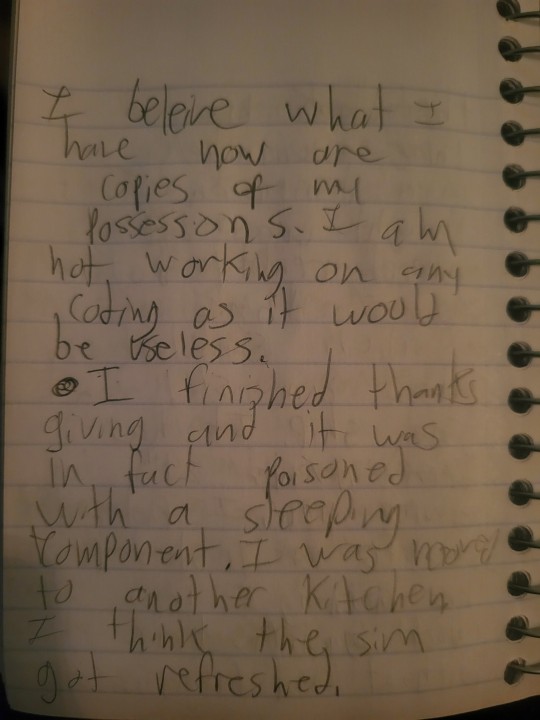 I beleive what I
have now are
copies of my
possessions. I am
not working on any
coding as it would
be useless.
I finished thanks
giving and it was
in fact poisoned
with a sleeping
component. I was moved
to another kitchen
I think the sim
got refreshed.